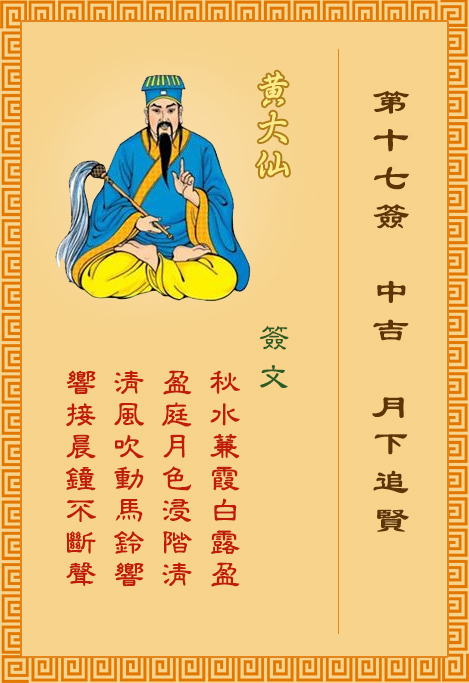 第十七簽 中吉 月下追賢
黃大仙
簽文
秋水蒹霞白露盈
盈庭月色浸階清
清風吹動馬鈴響
響接晨鐘不斷聲